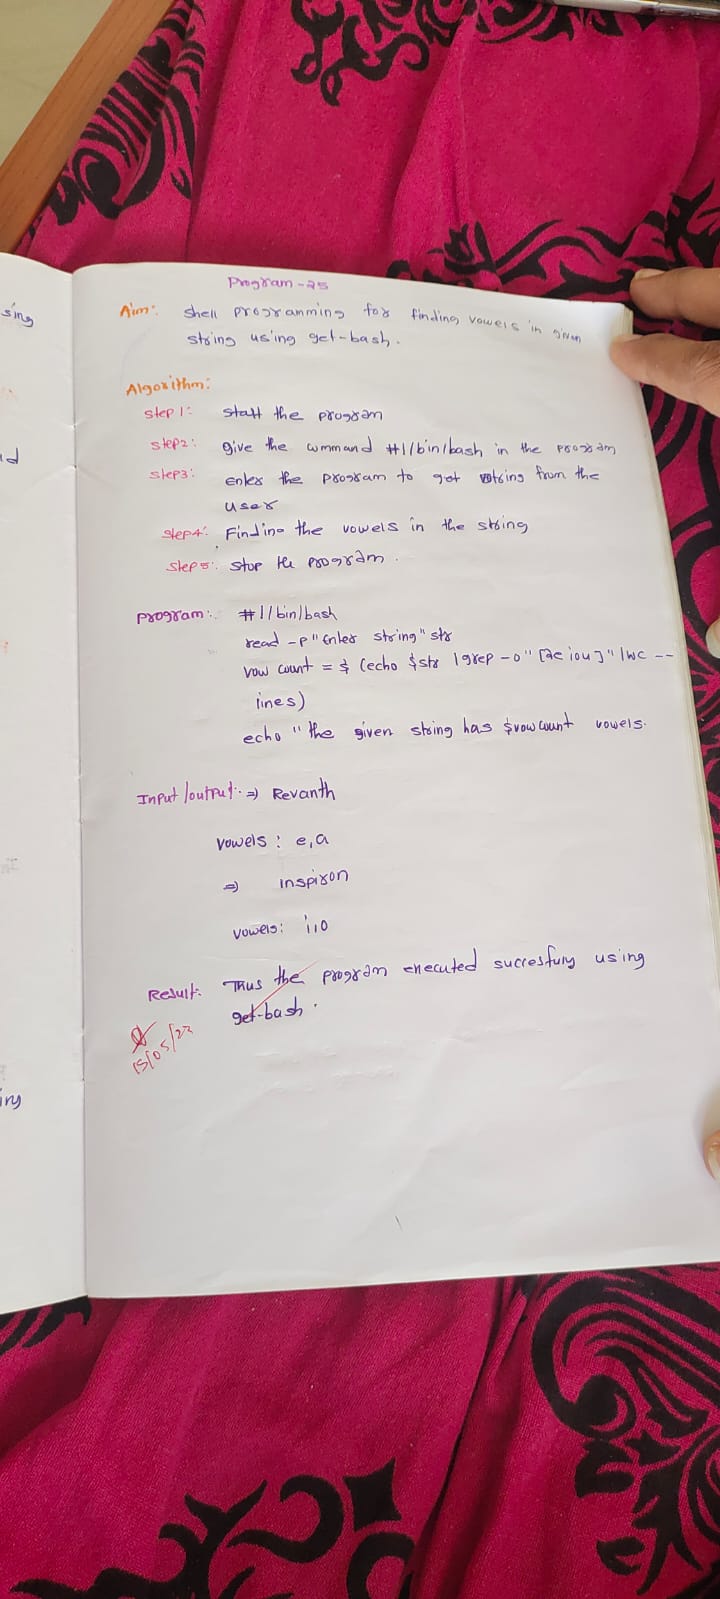 Program-25
Aim: shell programming for finding vowels in given
string using get-bash.
Algorithm:
Step 1: Statt the program
Step2: give the command #!/bin/bash in the program
Step3: enter the program to get string from the
user
Step4: Finding the vowels in the string
Step5: Stop the program.
Program: #!/bin/bash
read -p "Enter string" str
vow count = $ (echo $str | grep -o "[aeiou]" | wc --
lines)
echo "the given string has $vowcount vowels.
Input/output: => Revanth
vowels: e,a
=> inspiron
vowels: i,o
Result: Thus the program executed succesfuly using
get-bash.
15/05/23
sing
nd
ing